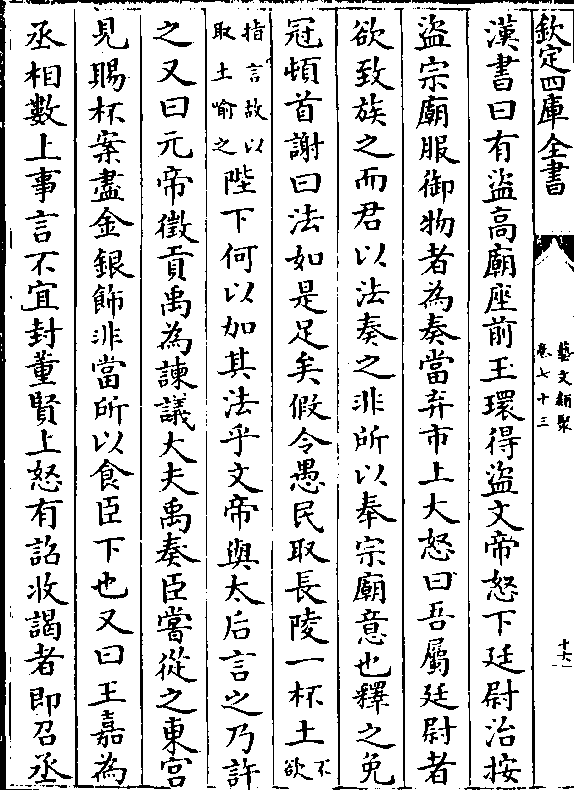 欽定四庫全書
藝文類聚
卷七十三
十六
漢書曰有盜高廟座前玉環得盜文帝怒下廷尉治按
盜宗廟服御物者為奏當弃市上大怒曰吾屬廷尉者
欲致族之而君以法奏之非所以奉宗廟意也釋之免
冠頓首謝曰法如是足矣假令愚民取長陵一杯土不欲
指言故以取土喻之陛下何以加其法乎文帝與太后言之乃許
之又曰元帝徵貢禹為諫議大夫禹奏臣嘗從之東宮
見賜杯案盡金銀飾非當所以食臣下也又曰王嘉為
丞相數上事言不宜封董賢上怒有詔收謁者即召丞